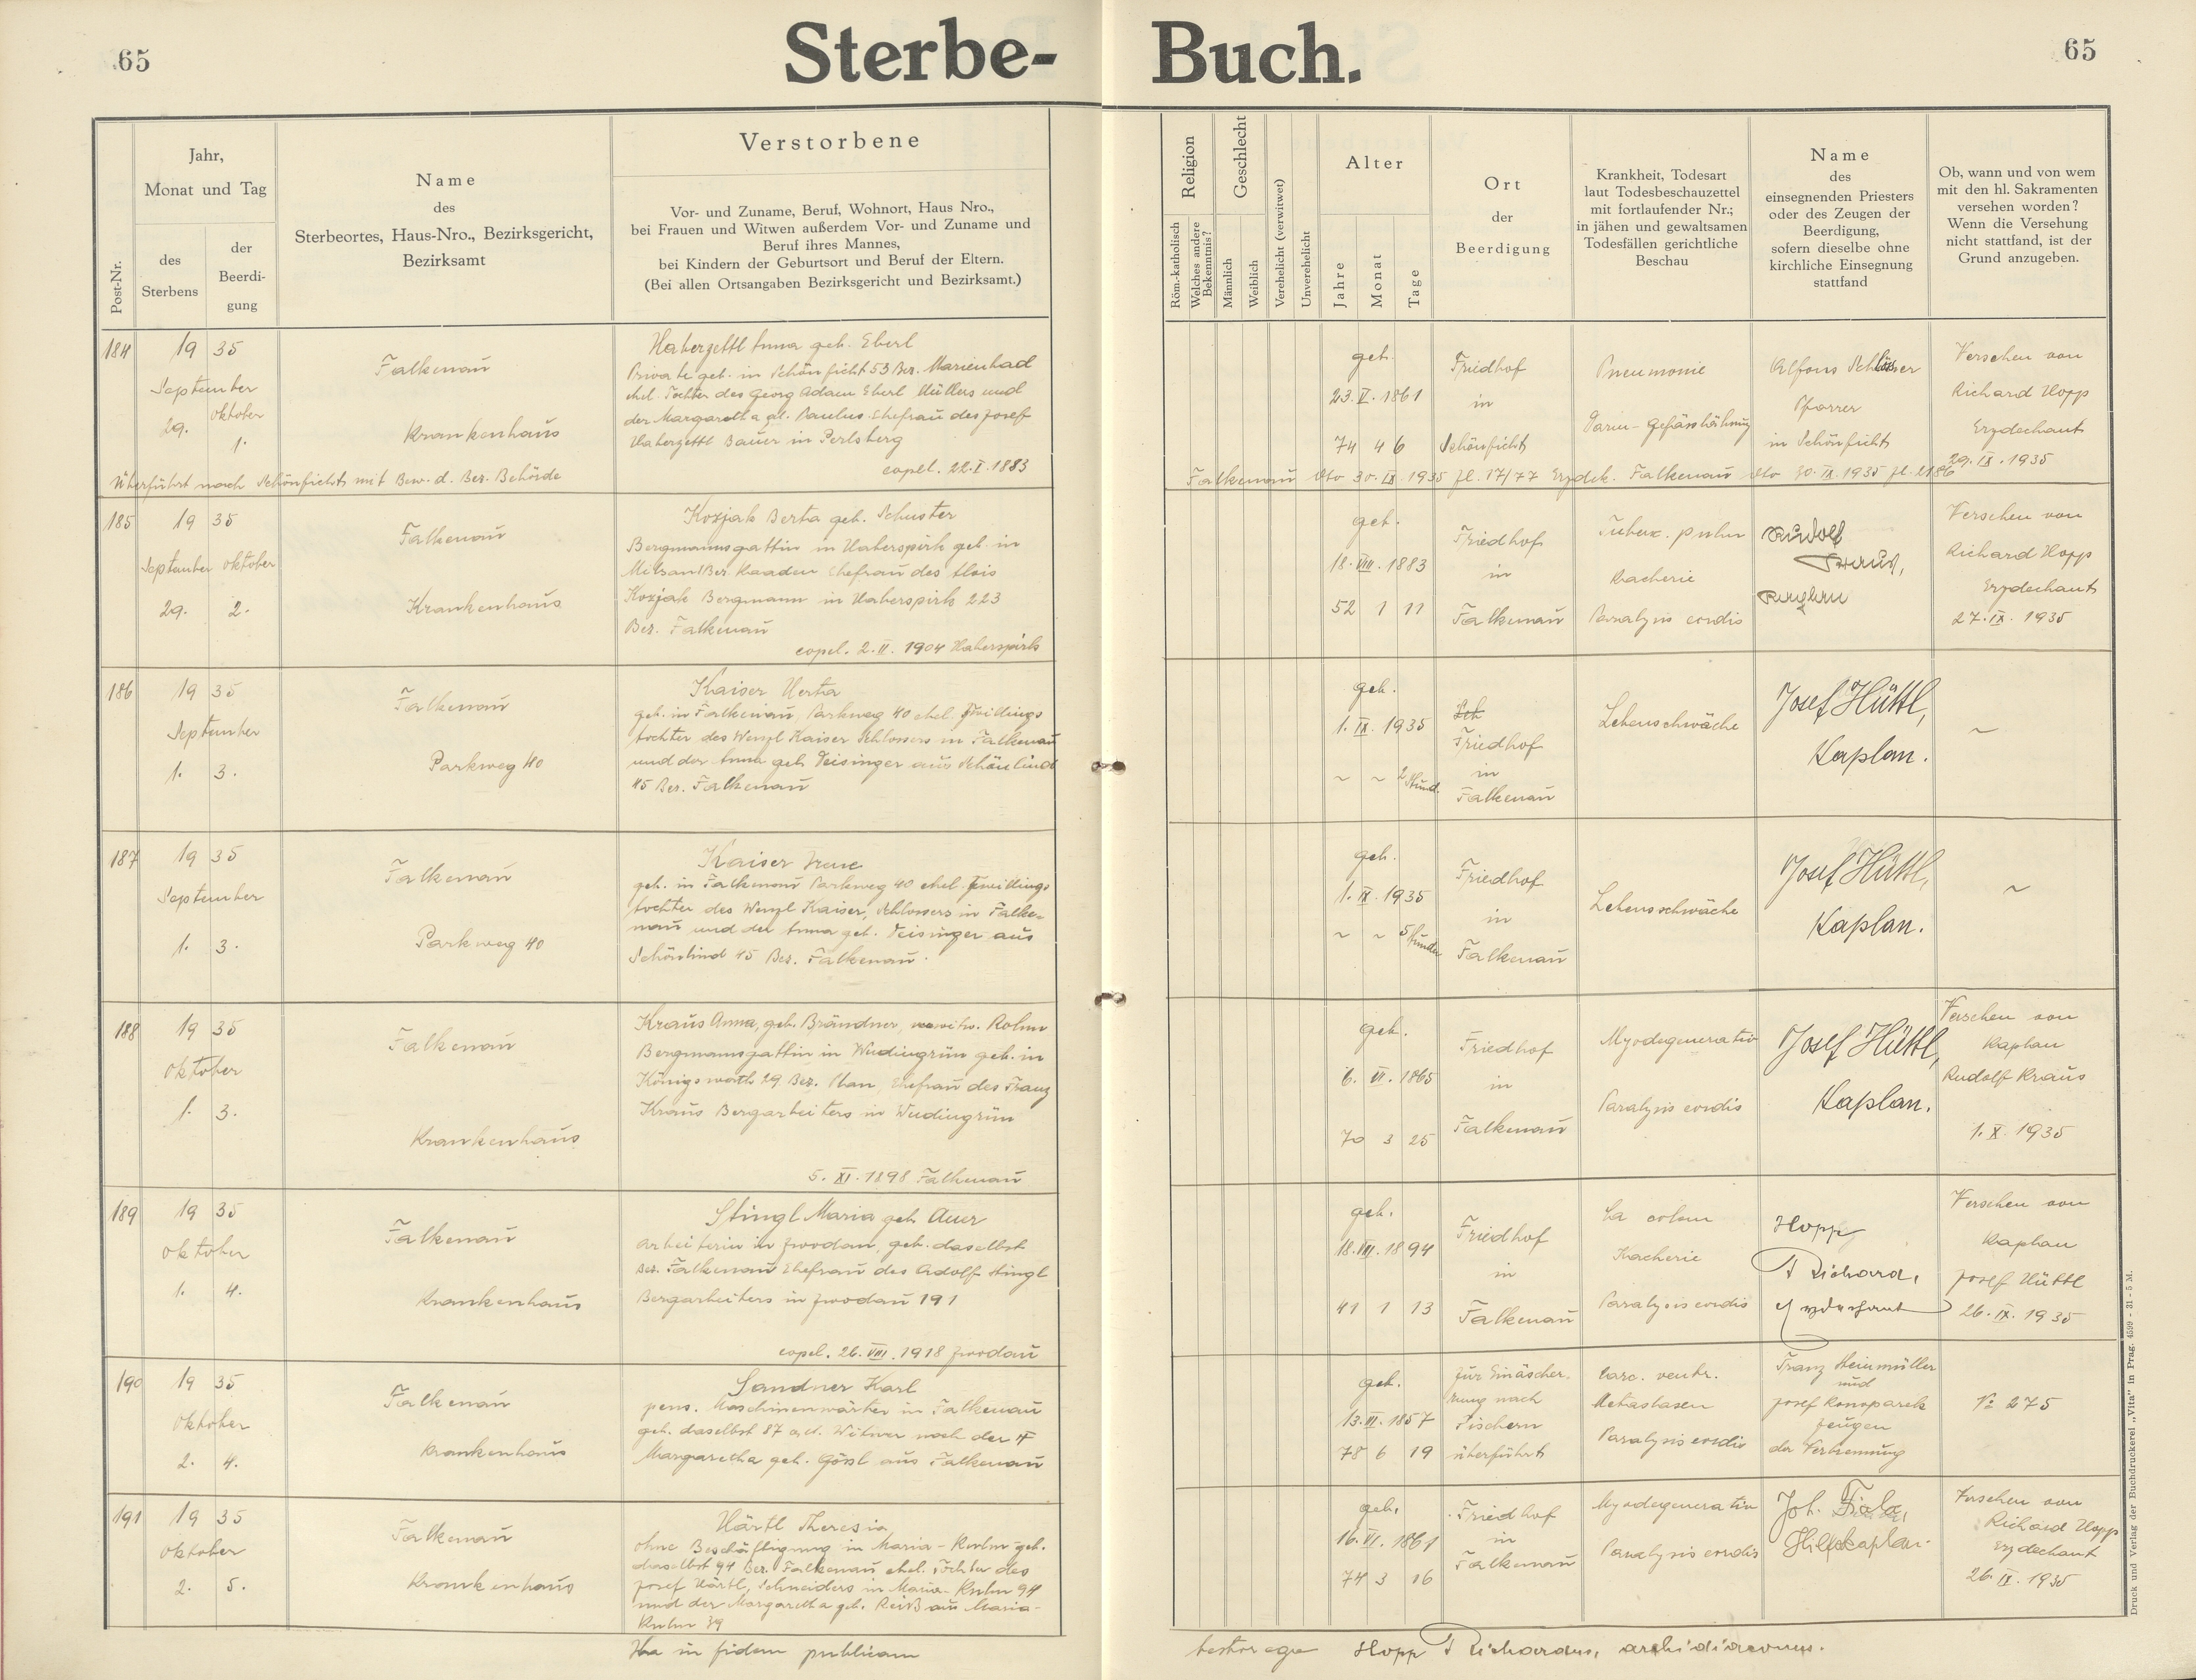 65
Sterbe-
Buch.
65
Post-Nr.
Jahr,
Monat und Tag
des
Sterbens
der
Beerdi-
gung
Name
des
Sterbeortes, Haus-Nro., Bezirksgericht,
Bezirksamt
Verstorbene
Vor- und Zuname, Beruf, Wohnort, Haus Nro.,
bei Frauen und Witwen außerdem Vor- und Zuname und
Beruf ihres Mannes,
bei Kindern der Geburtsort und Beruf der Eltern.
(Bei allen Ortsangaben Bezirksgericht und Bezirksamt.)
Religion
Röm.-katholisch
Welches andere
Bekenntnis?
Geschlecht
Männlich
Weiblich
Verehelicht (verwitwet)
Unverehelicht
Alter
Jahre
Monat
Tage
Ort
der
Beerdigung
Krankheit, Todesart
laut Todesbeschauzettel
mit fortlaufender Nr.;
in jähen und gewaltsamen
Todesfällen gerichtliche
Beschau
Name
des
einsegnenden Priesters
oder des Zeugen der
Beerdigung,
sofern dieselbe ohne
kirchliche Einsegnung
stattfand
Ob, wann und von wem
mit den hl. Sakramenten
versehen worden?
Wenn die Versehung
nicht stattfand, ist der
Grund anzugeben.
184
19 35
September
oktober
29.
1.
Falkenau
Krankenhaus
Haberzettl Anna geb. Eberl
Private geb. in Schönficht 53 Bez. Marienbad
ehel. Tochter des Georg Adam Eberl Müllers und
der Margaretha geb. Paulus Ehefrau des Josef
Haberzettl Bauer in Perlsberg
copel. 22.I.1883
Überführt nach Schönficht mit Bew. d. Bez. Behörde
Falkenau dto 30.IX.1935 Zl. 17/77 Erzdek. Falkenau dto 30.IX.1935 Zl. 2186
geb.
23.V.1861
74 4 6
Friedhof
in
Schönficht
Pneumonie
Darm-Gefässlähmung
Alfons Schlosser
Pfarrer
in Schönficht
Versehen von
Richard Hopp
Erzdechant
29.IX.1935
185
19 35
September oktober
29. 2.
Falkenau
Krankenhaus
Kozjak Berta geb. Schuster
Bergmannsgattin in Haberspirk geb. in
Milsau Bez. Kaaden Ehefrau des Alois
Kozjak Bergmann in Haberspirk 223
Bez. Falkenau
copel. 2.II.1904 Haberspirk
geb.
18.VIII.1883
52 1 11
Friedhof
in
Falkenau
Tuberc. pulm
Kacherie
Paralysis cordis
Rudolf
Kraus,
Kaplan
Versehen von
Richard Hopp
Erzdechant
27.IX.1935
186
19 35
September
1. 3.
Falkenau
Parkweg 40
Kaiser Herta
geb. in Falkenau, Parkweg 40 ehel. Zwillings
tochter des Wenzl Kaiser Schlossers in Falkenau
und der Anna geb. Deisinger aus Schönlind
45 Bez. Falkenau
geb.
1.IX.1935
~ ~ 2 Stund.
Sch
Friedhof
in
Falkenau
Lebensschwäche
Josef Hüttl,
Kaplan.
~
187
19 35
September
1. 3.
Falkenau
Parkweg 40
Kaiser Irene
geb. in Falkenau Parkweg 40 ehel. Zwillings
tochter des Wenzl Kaiser, Schlossers in Falke-
nau und der Anna geb. Deisinger aus
Schönlind 45 Bez. Falkenau.
geb.
1.IX.1935
~ ~ 5 Stunden
Friedhof
in
Falkenau
Lebensschwäche
Josef Hüttl,
Kaplan.
~
188
19 35
oktober
1. 3.
Falkenau
Krankenhaus
Kraus Anna, geb. Brändner, verwitw. Rohm
Bergmannsgattin in Wudingrün geb. in
Königswerth 29 Bez. Ehefrau des Franz
Kraus Bergarbeiters in Wudingrün
5.XI.1898 Falkenau
geb.
6.VI.1865
70 3 25
Friedhof
in
Falkenau
Myodegeneratio
Paralysis cordis
Josef Hüttl,
Kaplan.
Versehen von
Kaplan
Rudolf Kraus
1.X.1935
189
19 35
oktober
1. 4.
Falkenau
Krankenhaus
Stingl Maria geb. Auer
Arbeiterin in Zwodau, geb. daselbst
Bez. Falkenau Ehefrau des Adolf Stingl
Bergarbeiters in Zwodau 191
copel. 26.VIII.1918 Zwodau
geb.
18.VIII.1894
41 1 13
Friedhof
in
Falkenau
Ca colon
Kacherie
Paralysis cordis
Hopp
Richard,
Erzdechant
Versehen von
Kaplan
Josef Hüttl
26.IX.1935
190
19 35
oktober
2. 4.
Falkenau
Krankenhaus
Sandner Karl
pens. Maschinenwärter in Falkenau
geb. daselbst 87 a.d. Witwer nach der †
Margaretha geb. Gössl aus Falkenau
geb.
13.III.1857
78 6 19
Zur Einäscher-
rung nach
Tischern
überführt
Carc. ventr.
Metastasen
Paralysis cordis
Franz Heinmüller
und
Josef Konoparek
Zeugen
der Verbrennung
No 275
191
19 35
oktober
2. 5.
Falkenau
Krankenhaus
Härtl Theresia
ohne Beschäftigung in Maria-Kulm geb.
daselbst 94 Bez. Falkenau ehel. Tochter des
Josef Härtl, Schneiders in Maria-Kulm 94
und der Margaretha geb. Reiß aus Maria-
Kulm 39
geb.
16.VI.1861
74 3 16
Friedhof
in
Falkenau
Myodegeneratio
Paralysis cordis
Joh. Fiala,
Hilfskaplan.
Versehen von
Richard Hopp
Erzdechant
26.IX.1935
Ita in fidem publicam
testor ego Hopp Richardus, archidiaconus.
Druck und Verlag der Buchdruckerei „Vita" in Prag. 4599 - 31 - 5 M.